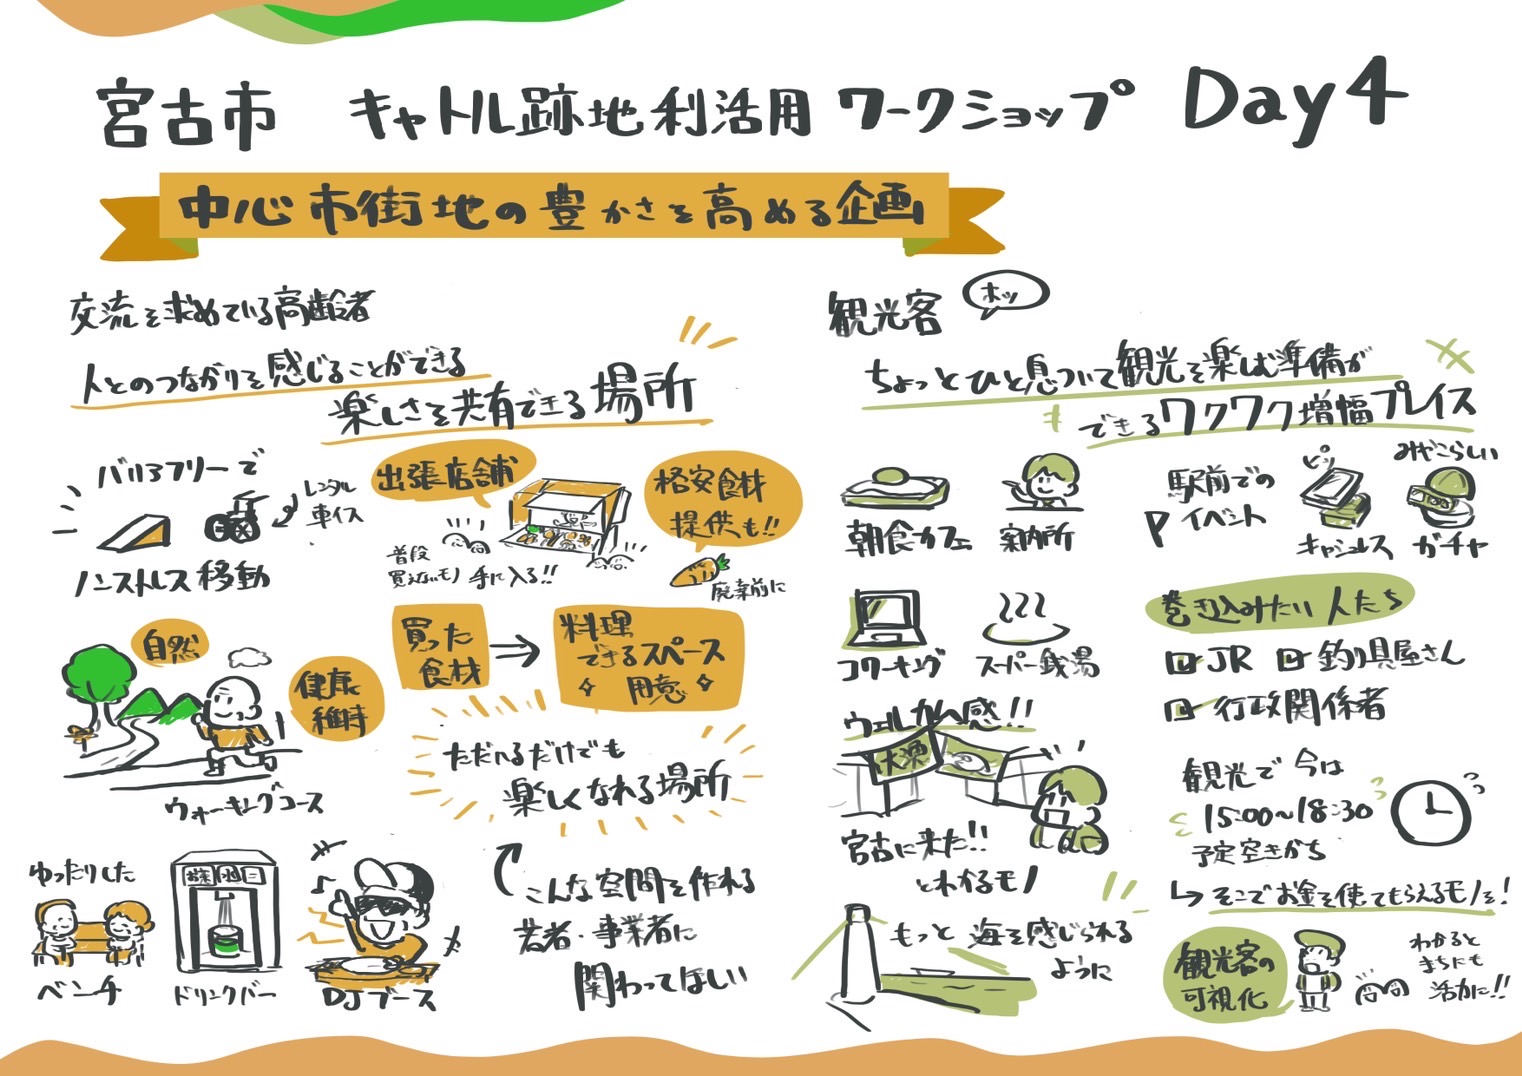 宮古市 キャトル跡地利活用ワークショップ Day4
中心市街地の豊かさを高める企画
交流を求めている高齢者
人とのつながりを感じることができる
楽しさを共有できる場所
バリアフリーで
レンタル
車イス
ノンストレス移動
出張店舗
普段
買えないモノ手に入る!!
格安食材
提供も!!
廃棄前に
自然
健康
維持
ウォーキングコース
買った
食材
料理
できるスペース
用意
ただいるだけでも
楽しくなれる場所
ゆったりした
ベンチ
ドリンクバー
DJブース
こんな空間を作れる
若者・事業者に
関わってほしい
観光客
ホッ
ちょっとひと息ついて観光を楽しむ準備が
できるワクワク増幅プレイス
朝食カフェ
案内所
コワーキング
スーパー銭湯
ウェルカム感!!
大漁
宮古に来た!!
とわかるモノ
もっと海を感じられる
ように
駅前での
イベント
ピッ
キャッシュレス
みやこらしい
ガチャ
巻き込みたい人たち
JR
釣り具屋さん
行政関係者
観光で今は
15:00〜18:30
予定空きがち
そこでお金を使ってもらえるモノを!
観光客の
可視化
わかると
まちにも
活力に!!